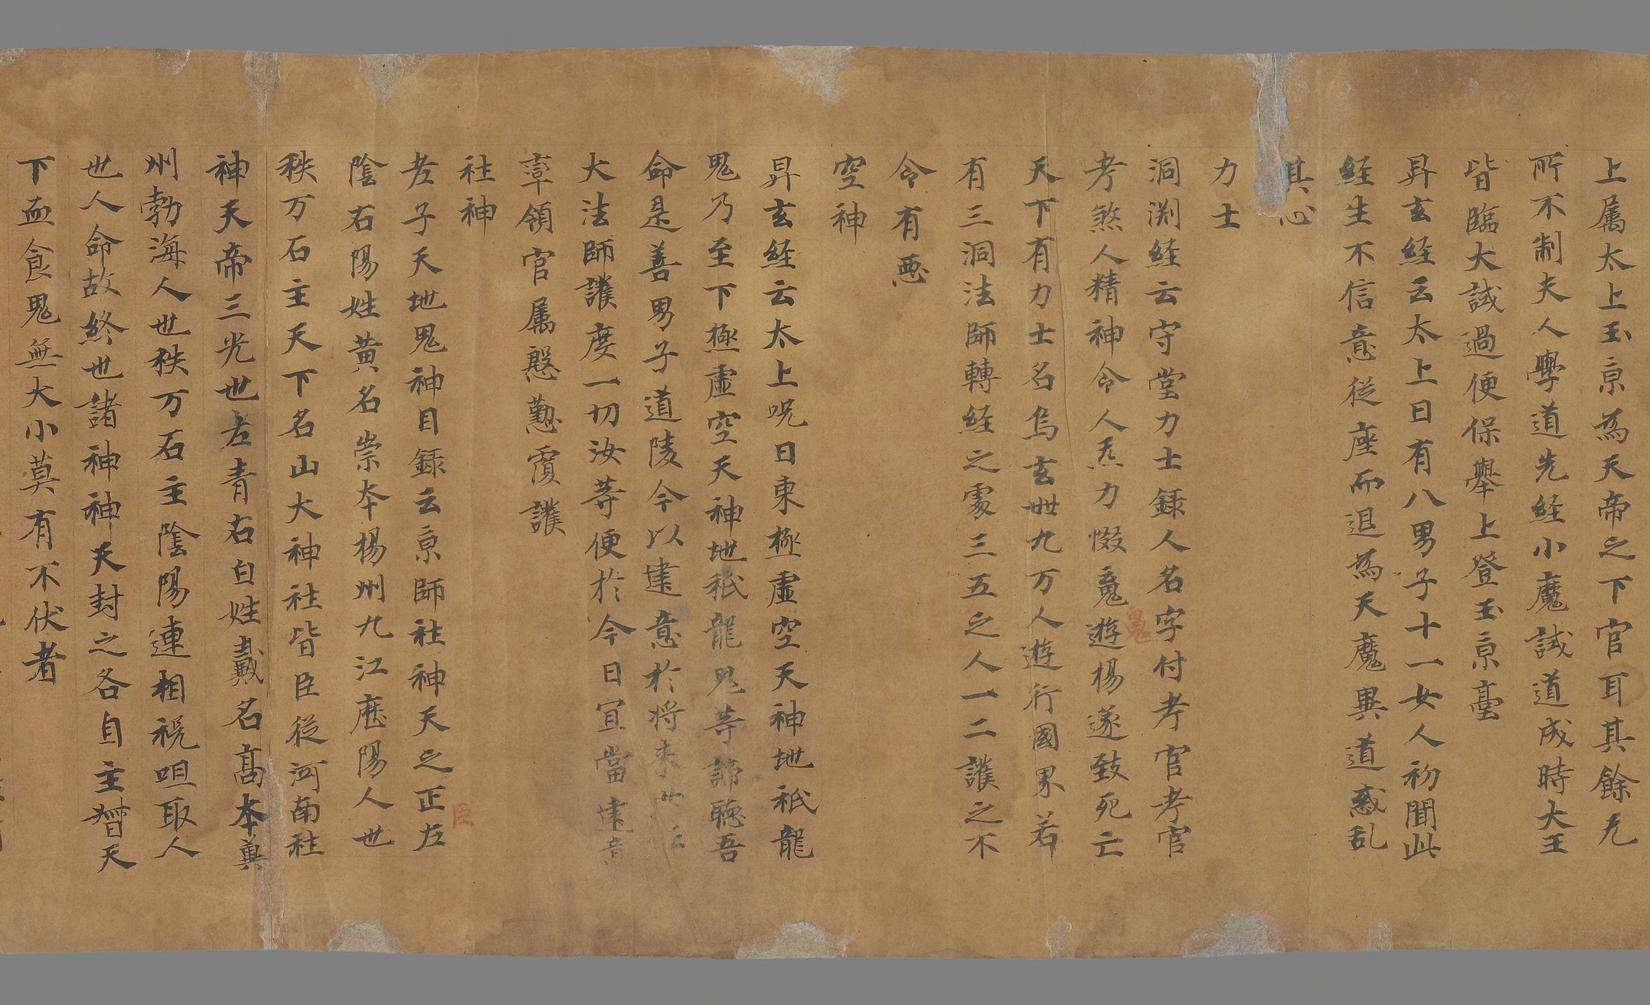 上属太上玉京為天帝之下官耳其餘无
所不制夫人學道先經小魔試道成時大王
皆臨大試過便保舉上登玉京臺
昇玄經云太上曰有八男子十一女人初聞此
經生不信意從座而退為天魔異道惑乱
其心
力士
洞渊經云守堂力士録人名字付考官考官
考煞人精神令人恙力惙鬼遊楊遂致死亡
鬼
天下有力士名烏玄卌九万人遊行國界若
有三洞法師轉經之處三五之人一二護之不
令有惡
空神
昇玄經云太上呪曰東極虛空天神地衹龍
鬼乃至下極虛空天神地衹龍鬼等諦聽吾
命是善男子道陵今以建意於将来世
大法師護度一切汝等便於今日宜當建
章領官属慇懃覆護
社神
老子天地鬼神目録云京師社神天之正左
臣
陰右陽姓黃名崇本楊州九江歷陽人也
秩万石主天下名山大神社皆臣從河南社
神天帝三光也左青右白姓戴名高本冀
州勃海人也秩万石主陰陽連相祝咀取人
世人命故終世諸神神天封之各自主督天
下血食鬼無大小莫有不伏者